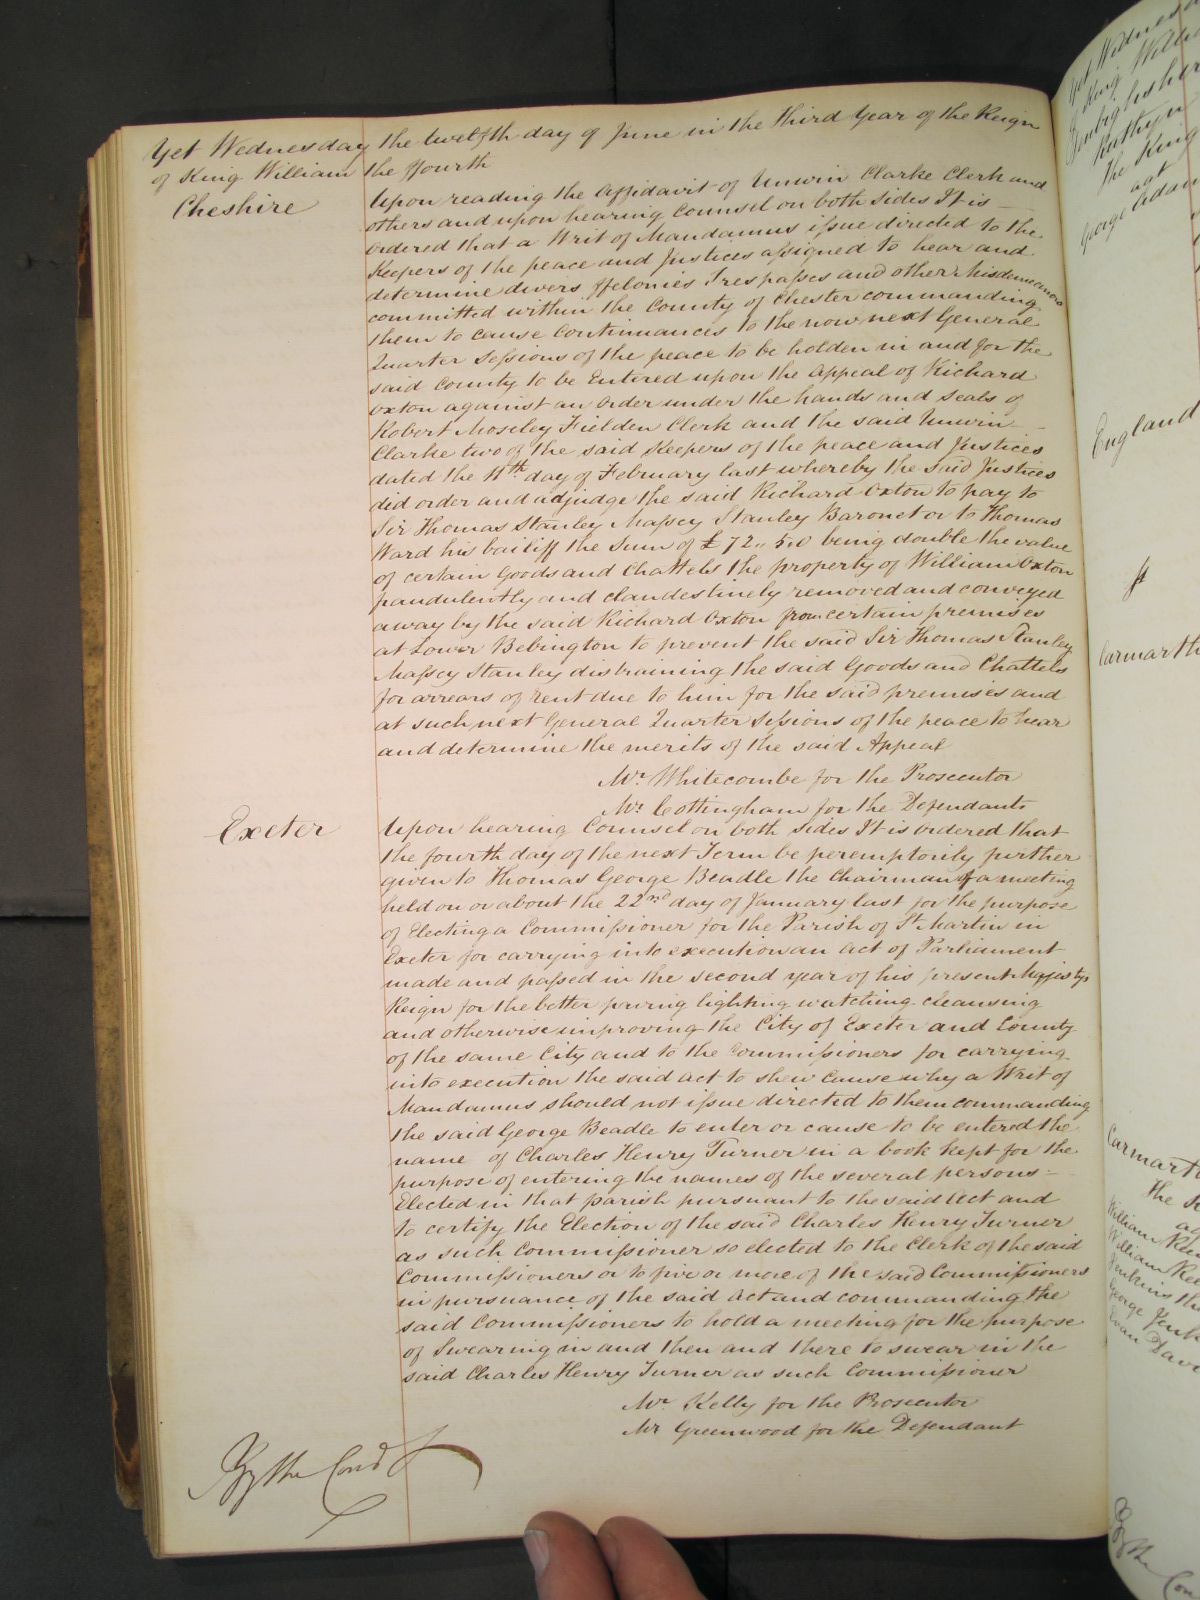 Yet Wednesday the twelfth day of June in the third Year of the Reign
of King William the ffourth
Cheshire
Upon reading the Affidavit of Unwin Clarke Clerk and
others and upon hearing Counsel on both sides It is
ordered that a Writ of Mandamus issue directed to the
Keepers of the peace and Justices assigned to hear and
determine divers ffelonies Trespasses and other Misdemeanors
committed within the County of Chester commanding
them to cause Continuances to the now next General
Quarter Sessions of the peace to be holden in and for the
said County to be Entered upon the Appeal of Richard
Oxton against an Order under the hands and Seals of
Robert Moseley Fielden Clerk and the said Unwin
Clarke two of the said Keepers of the peace and Justices
dated the 11th day of February last whereby the said Justices
did order and adjudge the said Richard Oxton to pay to
Sir Thomas Stanley Massey Stanley Baronet or to Thomas
Ward his bailiff the Sum of £72,, 5,0 being double the value
of certain Goods and Chattels the property of William Oxton
fraudulently and clandestinely removed and conveyed
away by the said Richard Oxton from certain premises
at Lower Bebington to prevent the said Sir Thomas Stanley
Massey Stanley distraining the said Goods and Chattels
for arrears of rent due to him for the said premises and
at such next General Quarter Sessions of the peace to hear
and determine the merits of the said Appeal
Mr. Whitecombe for the Prosecutor
Mr. Cottingham for the Defendants
Exeter
Upon hearing Counsel on both sides It is ordered that
the fourth day of the next Term be peremptorily further
given to Thomas George Beadle the Chairman of a meeting
held on or about the 22nd day of January last for the purpose
of Electing a Commissioner for the Parish of St. Martin in
Exeter for carrying into execution an Act of Parliament
made and passed in the second year of his present Majestys
Reign for the better paving lighting watching cleansing
and otherwise improving the City of Exeter and County
of the same City and to the Commissioners for carrying
into execution the said Act to shew Cause why a Writ of
Mandamus should not issue directed to them commanding
the said George Beadle to enter or cause to be entered the
name of Charles Henry Turner in a book kept for the
purpose of entering the names of the several persons
Elected in that parish pursuant to the said Act and
to certify the Election of the said Charles Henry Turner
as such Commissioner so elected to the Clerk of the said
Commissioners or to five or more of the said Commissioners
in pursuance of the said Act and commanding the
said Commissioners to hold a meeting for the purpose
of Swearing in and then and there to swear in the
said Charles Henry Turner as such Commissioner
Mr. Kelly for the Prosecutor
Mr Greenwood for the Defendant
By the Court
Yet Wednesda
King Willia
Denbighshire
Ruthyn
The King
agt
George Adam
England
Carmarth
Carmarth
The K
William
William Ree
Jenkins
George Jenk
Evan Davi
By the Co